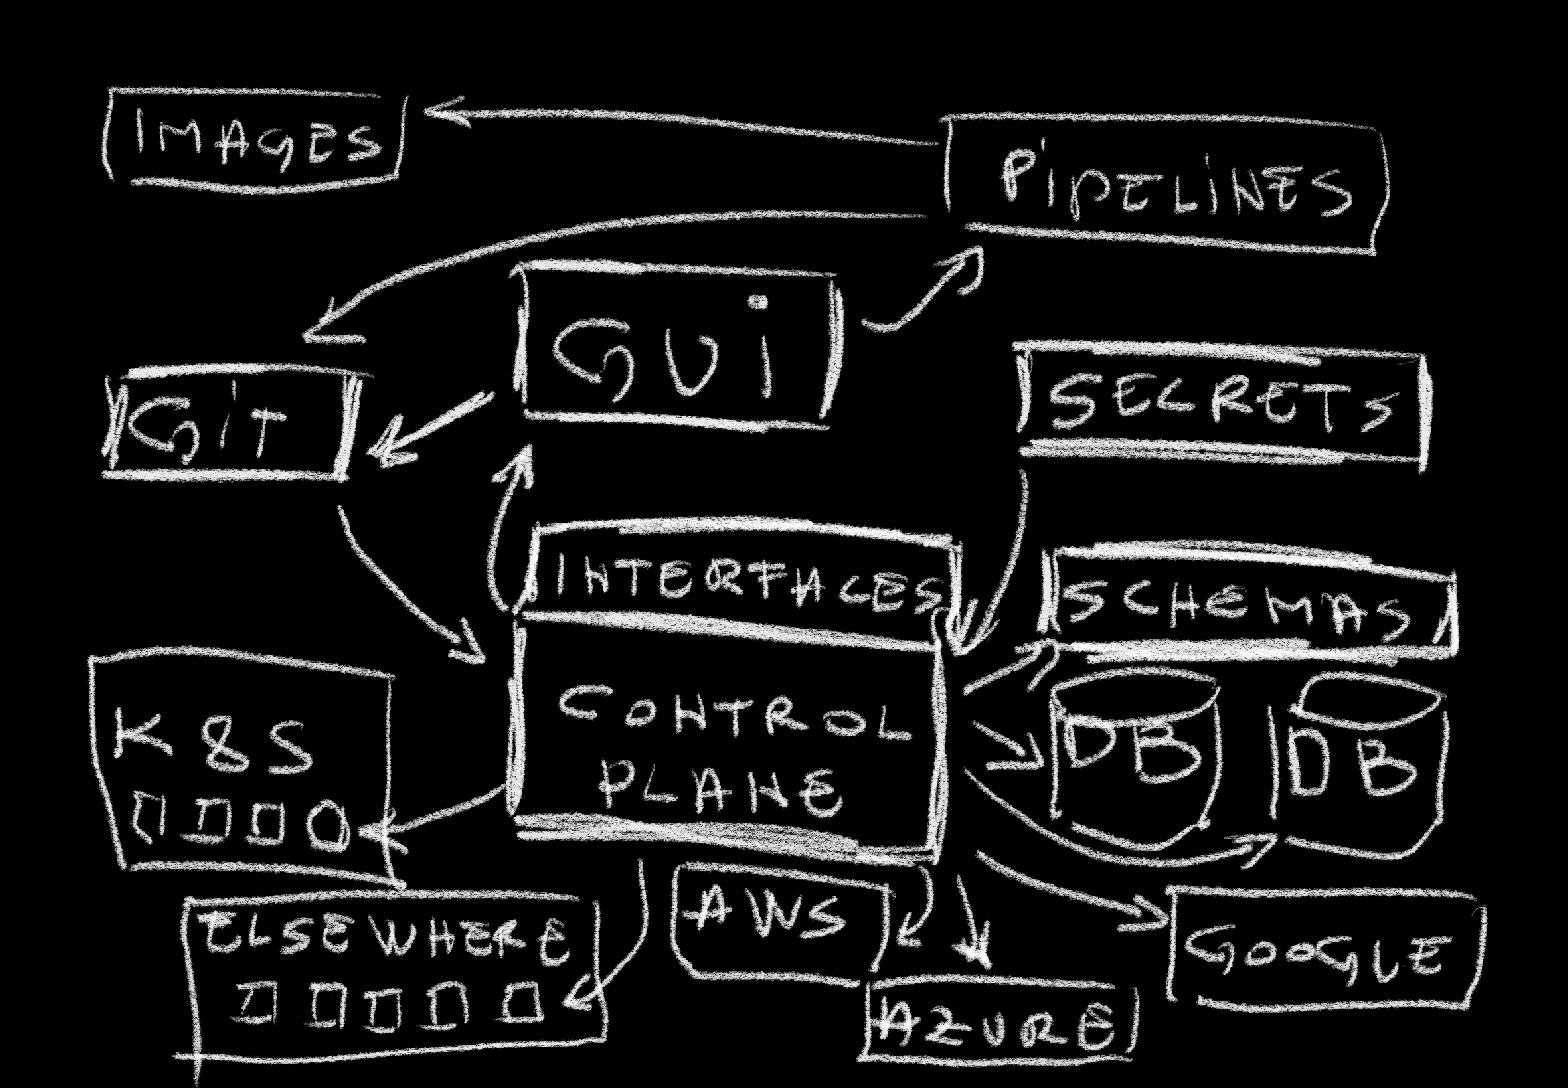 IMAGES
PIPELINES
GUI
GIT
SECRETS
INTERFACES
SCHEMAS
CONTROL
PLANE
K8S
DB
DB
ELSEWHERE
AWS
GOOGLE
AZURE